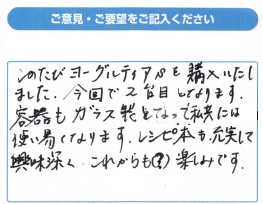 ご意見・ご要望をご記入ください
このたびヨーグルティアSを購入いたし
ました。今回で2台目となります。
容器もガラス製となって私には
使い易くなります。レシピ本も充実して
興味深く これからも(?)楽しみです。